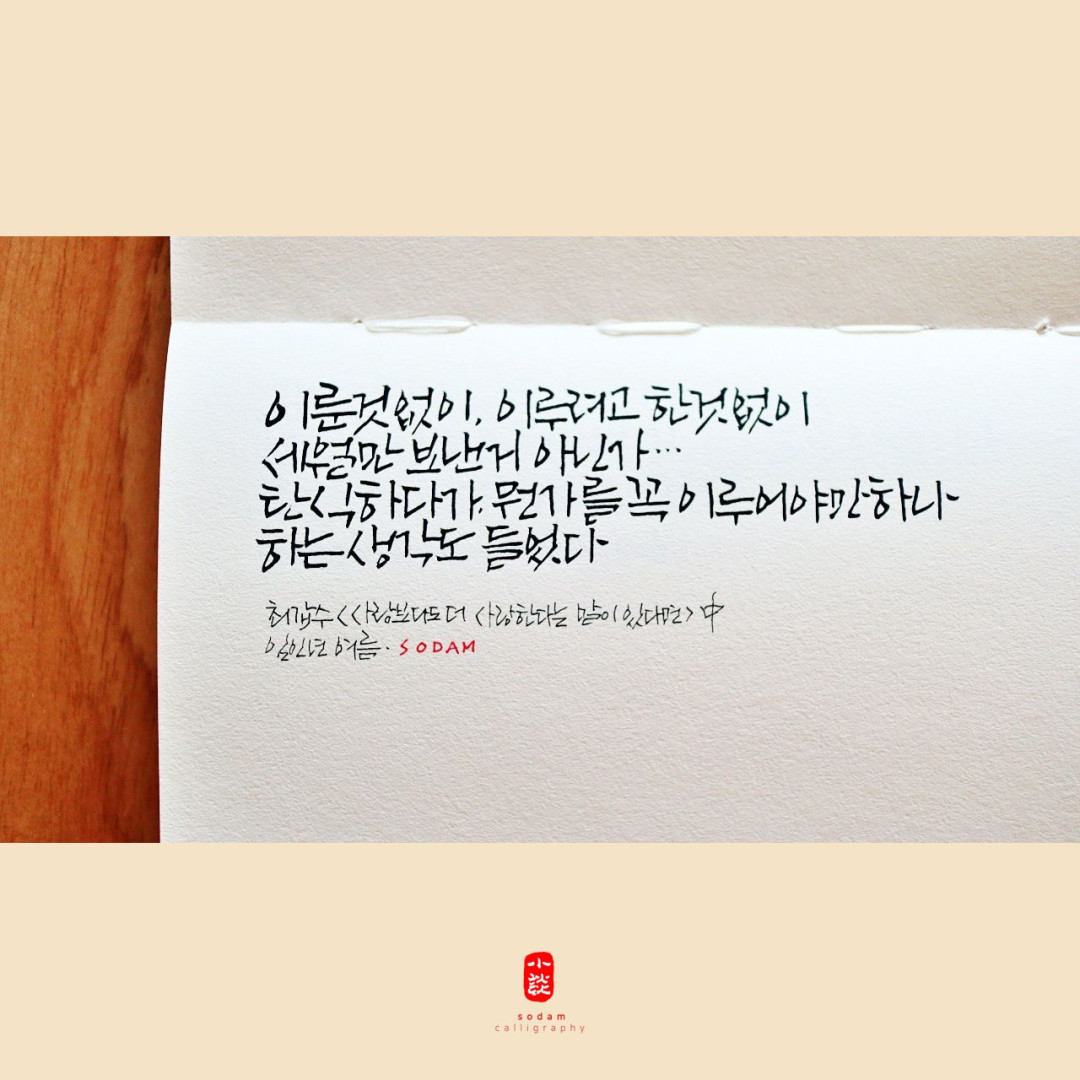 이룬것 없이, 이루려고 한것 없이
세월만 보낸 게 아닌가...
탄식하다가, 뭔가를 꼭 이루어야만 하나
하는 생각도 들었다
최갑수 <사랑보다도 더 사랑한다는 말이 있다면> 中
임인년 여름. SODAM
小談
sodam
calligraphy